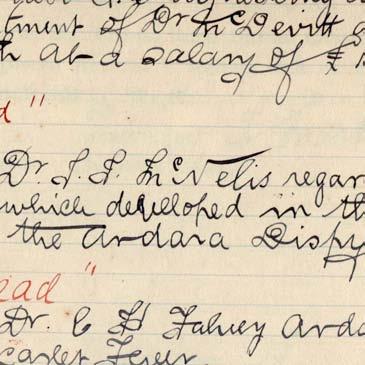 tment of Dr McDevitt a
at a salary of £
d"
Dr. J. J. McNelis regar
which developed in th
the Ardara Dispy
ead"
Dr. C H Falvey Arda
carlet Fever.